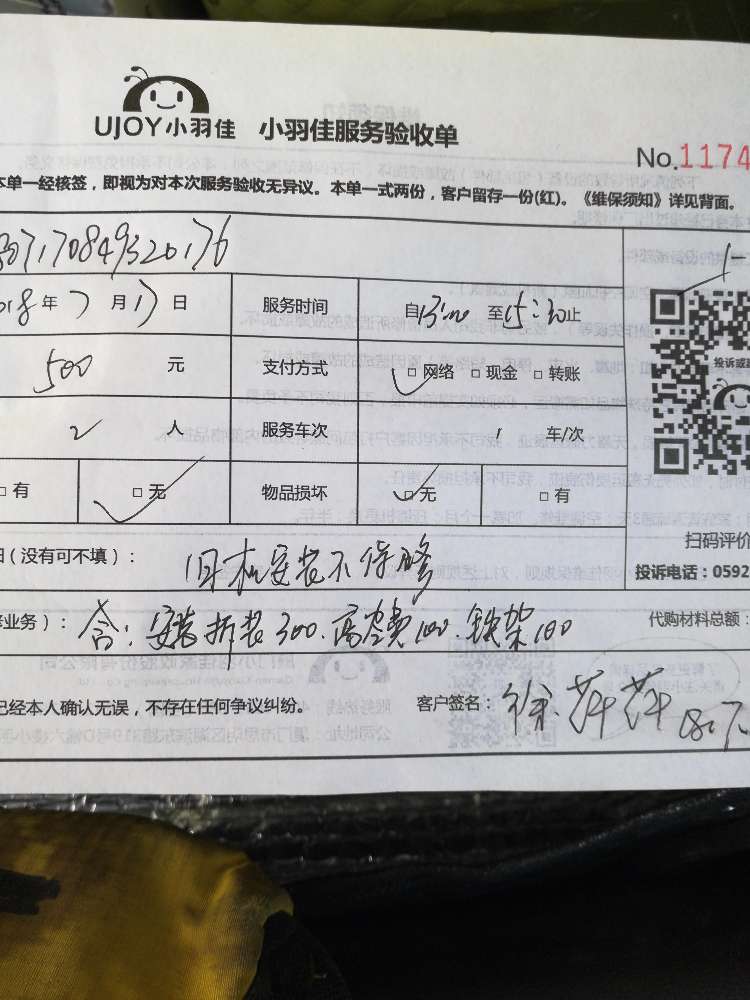 UJOY小羽佳 小羽佳服务验收单
No.1174
本单一经核签，即视为对本次服务验收无异议。本单一式两份，客户留存一份(红)。《维保须知》详见背面。
07170849320176
018年7月17日 服务时间 自13:00至15:30止
500元 支付方式 □网络 □现金 □转账
2人 服务车次 1车/次
□有 □无 物品损坏 □无 □有
投诉或
扫码评价
(没有可不填)： 旧机安装不保修
投诉电话：0592
业务)：含：安装拆装300.高空费100.铁架100 代购材料总额：
已经本人确认无误，不存在任何争议纠纷。 客户签名：徐萍萍